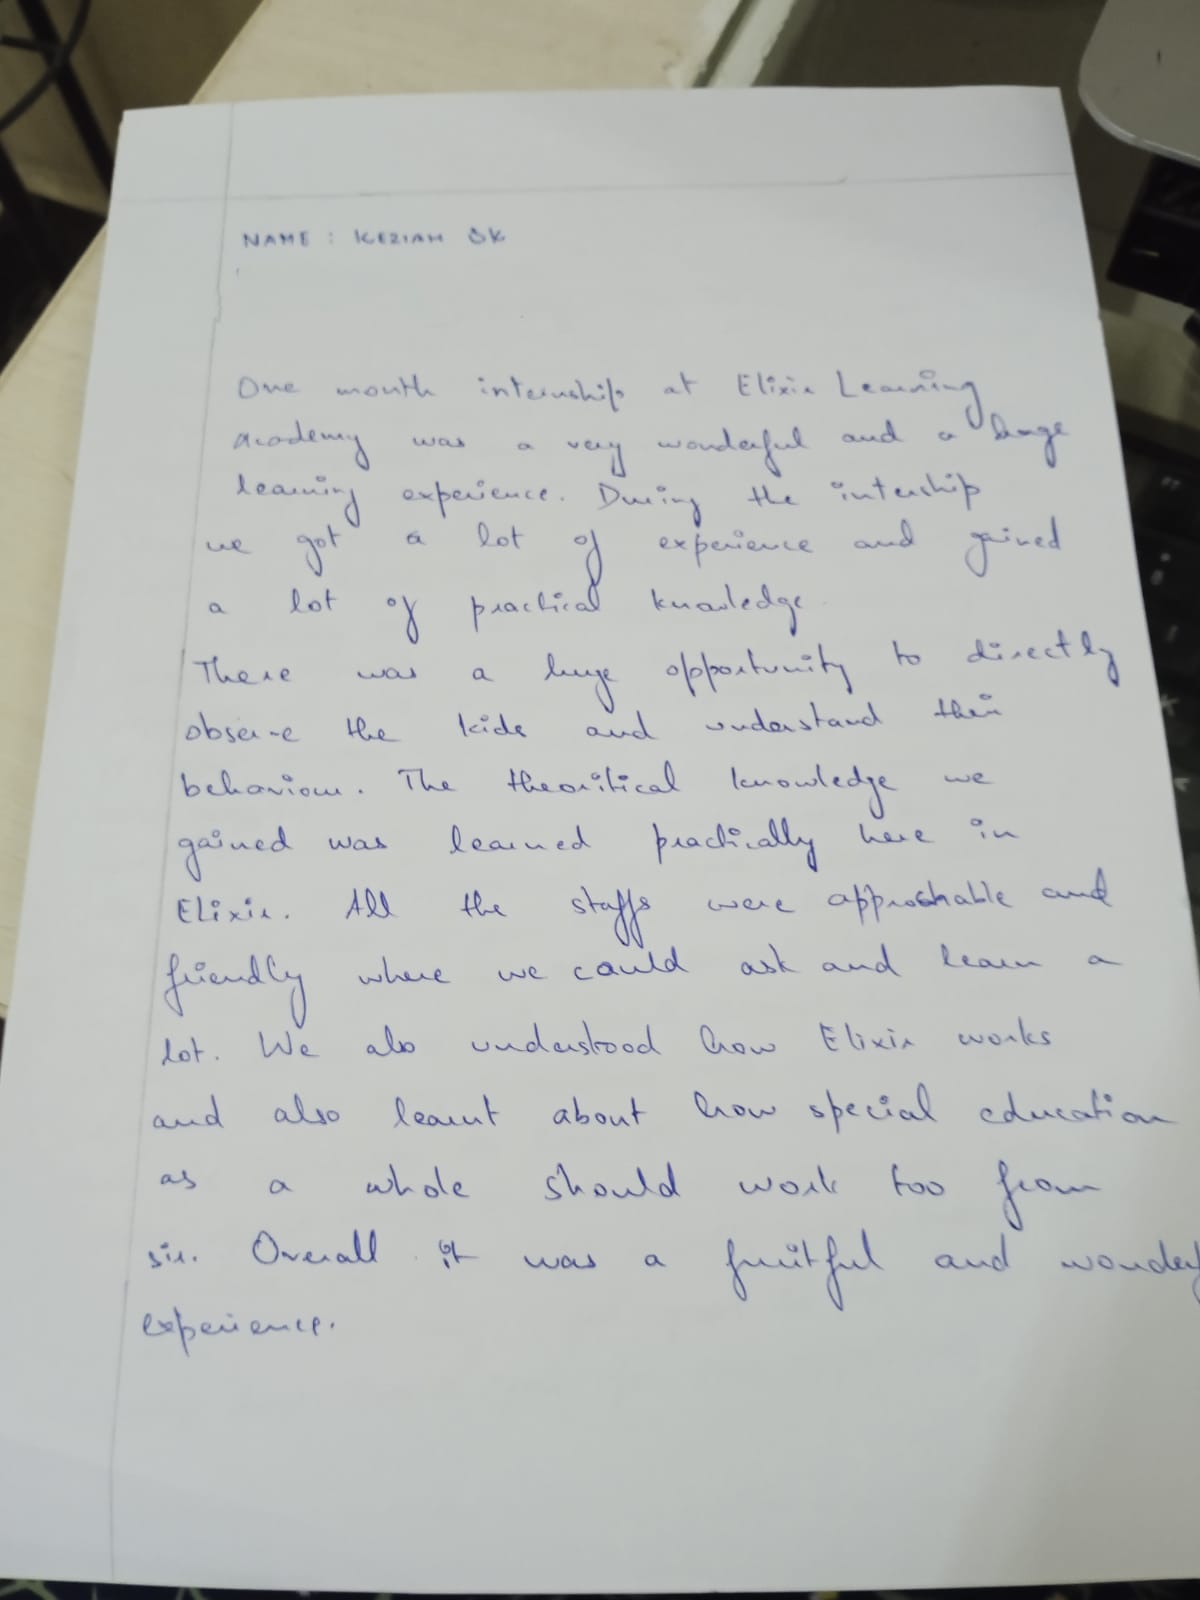 NAME : KEZIAH SK
One month internship at Elixir Learning
Academy was a very wonderful and a huge
learning experience. During the intership
we got a lot of experience and gained
a lot of practical knowledge.
There was a huge opportunity to directly
observe the kids and understand their
behaviour. The theoritical knowledge we
gained was learned practically here in
Elixir. All the staffs were approchable and
friendly where we could ask and learn a
lot. We also understood how Elixir works
and also learnt about how special education
as a whole should work too from
sir. Overall it was a fruitful and wonderf
experience.